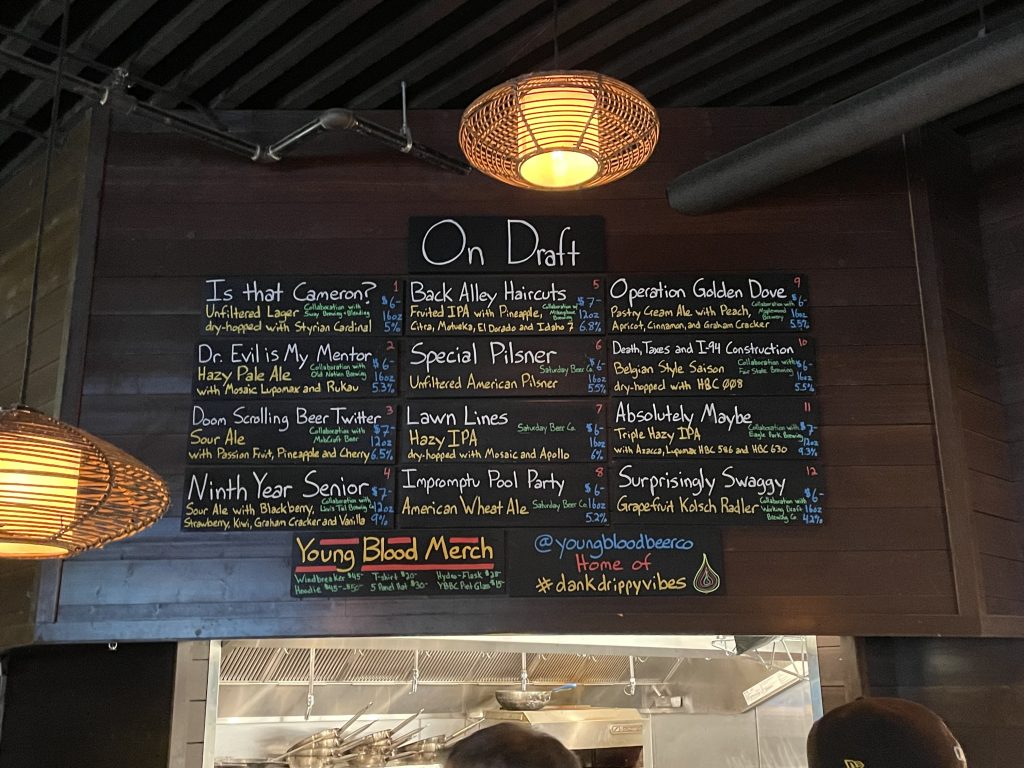 On Draft
Is that Cameron? 1
Unfiltered Lager Collaboration with $6-
Sway Brewing + Blending 16oz
dry-hopped with Styrian Cardinal 5%
Dr. Evil is My Mentor 2
Hazy Pale Ale Collaboration with $6-
Old Nation Brewing 16oz
with Mosaic Lupomax and Rukau 5.3%
Doom Scrolling Beer Twitter 3
Sour Ale Collaboration with $7-
MobCraft Beer 12oz
with Passion Fruit, Pineapple and Cherry 6.5%
Ninth Year Senior 4
Collaboration with $7-
Sour Ale with Blackberry, 12oz
Strawberry, Kiwi, Graham Cracker and Vanilla 9%
Back Alley Haircuts 5
Fruited IPA with Pineapple, Collaboration w/ $7-
Brewing 12oz
Citra, Motueka, El Dorado and Idaho 7 6.8%
Special Pilsner 6
Saturday Beer Co. $6-
16oz
Unfiltered American Pilsner 5.5%
Lawn Lines 7
Saturday Beer Co. $6-
Hazy IPA 16oz
dry-hopped with Mosaic and Apollo 6%
Impromptu Pool Party 8
$6-
American Wheat Ale Saturday Beer Co. 16oz
5.2%
Operation Golden Dove 9
Pastry Cream Ale with Peach, Collaboration with $6-
Maplewood Brewery 16oz
Apricot, Cinnamon, and Graham Cracker 5.5%
Death, Taxes and I-94 Construction 10
Belgian Style Saison Collaboration with $6-
Fair State Brewing 16oz
dry-hopped with HBC 008 5.5%
Absolutely Maybe 11
Triple Hazy IPA Collaboration with $7-
Eagle Park Brewing 12oz
with Azacca, Lupomax HBC 586 and HBC 630 9.3%
Surprisingly Swaggy 12
Collaboration with $6-
Grapefruit Kolsch Radler Working Draft 16oz
Brewing Co. 4.2%
Young Blood Merch
Windbreaker $45- T-shirt $20- Hydro-Flask $20-
Hoodie $45-$50- 5 Panel Hat $30- YBBC Pint Glass $15-
@youngbloodbeerco
Home of
#dankdrippyvibes